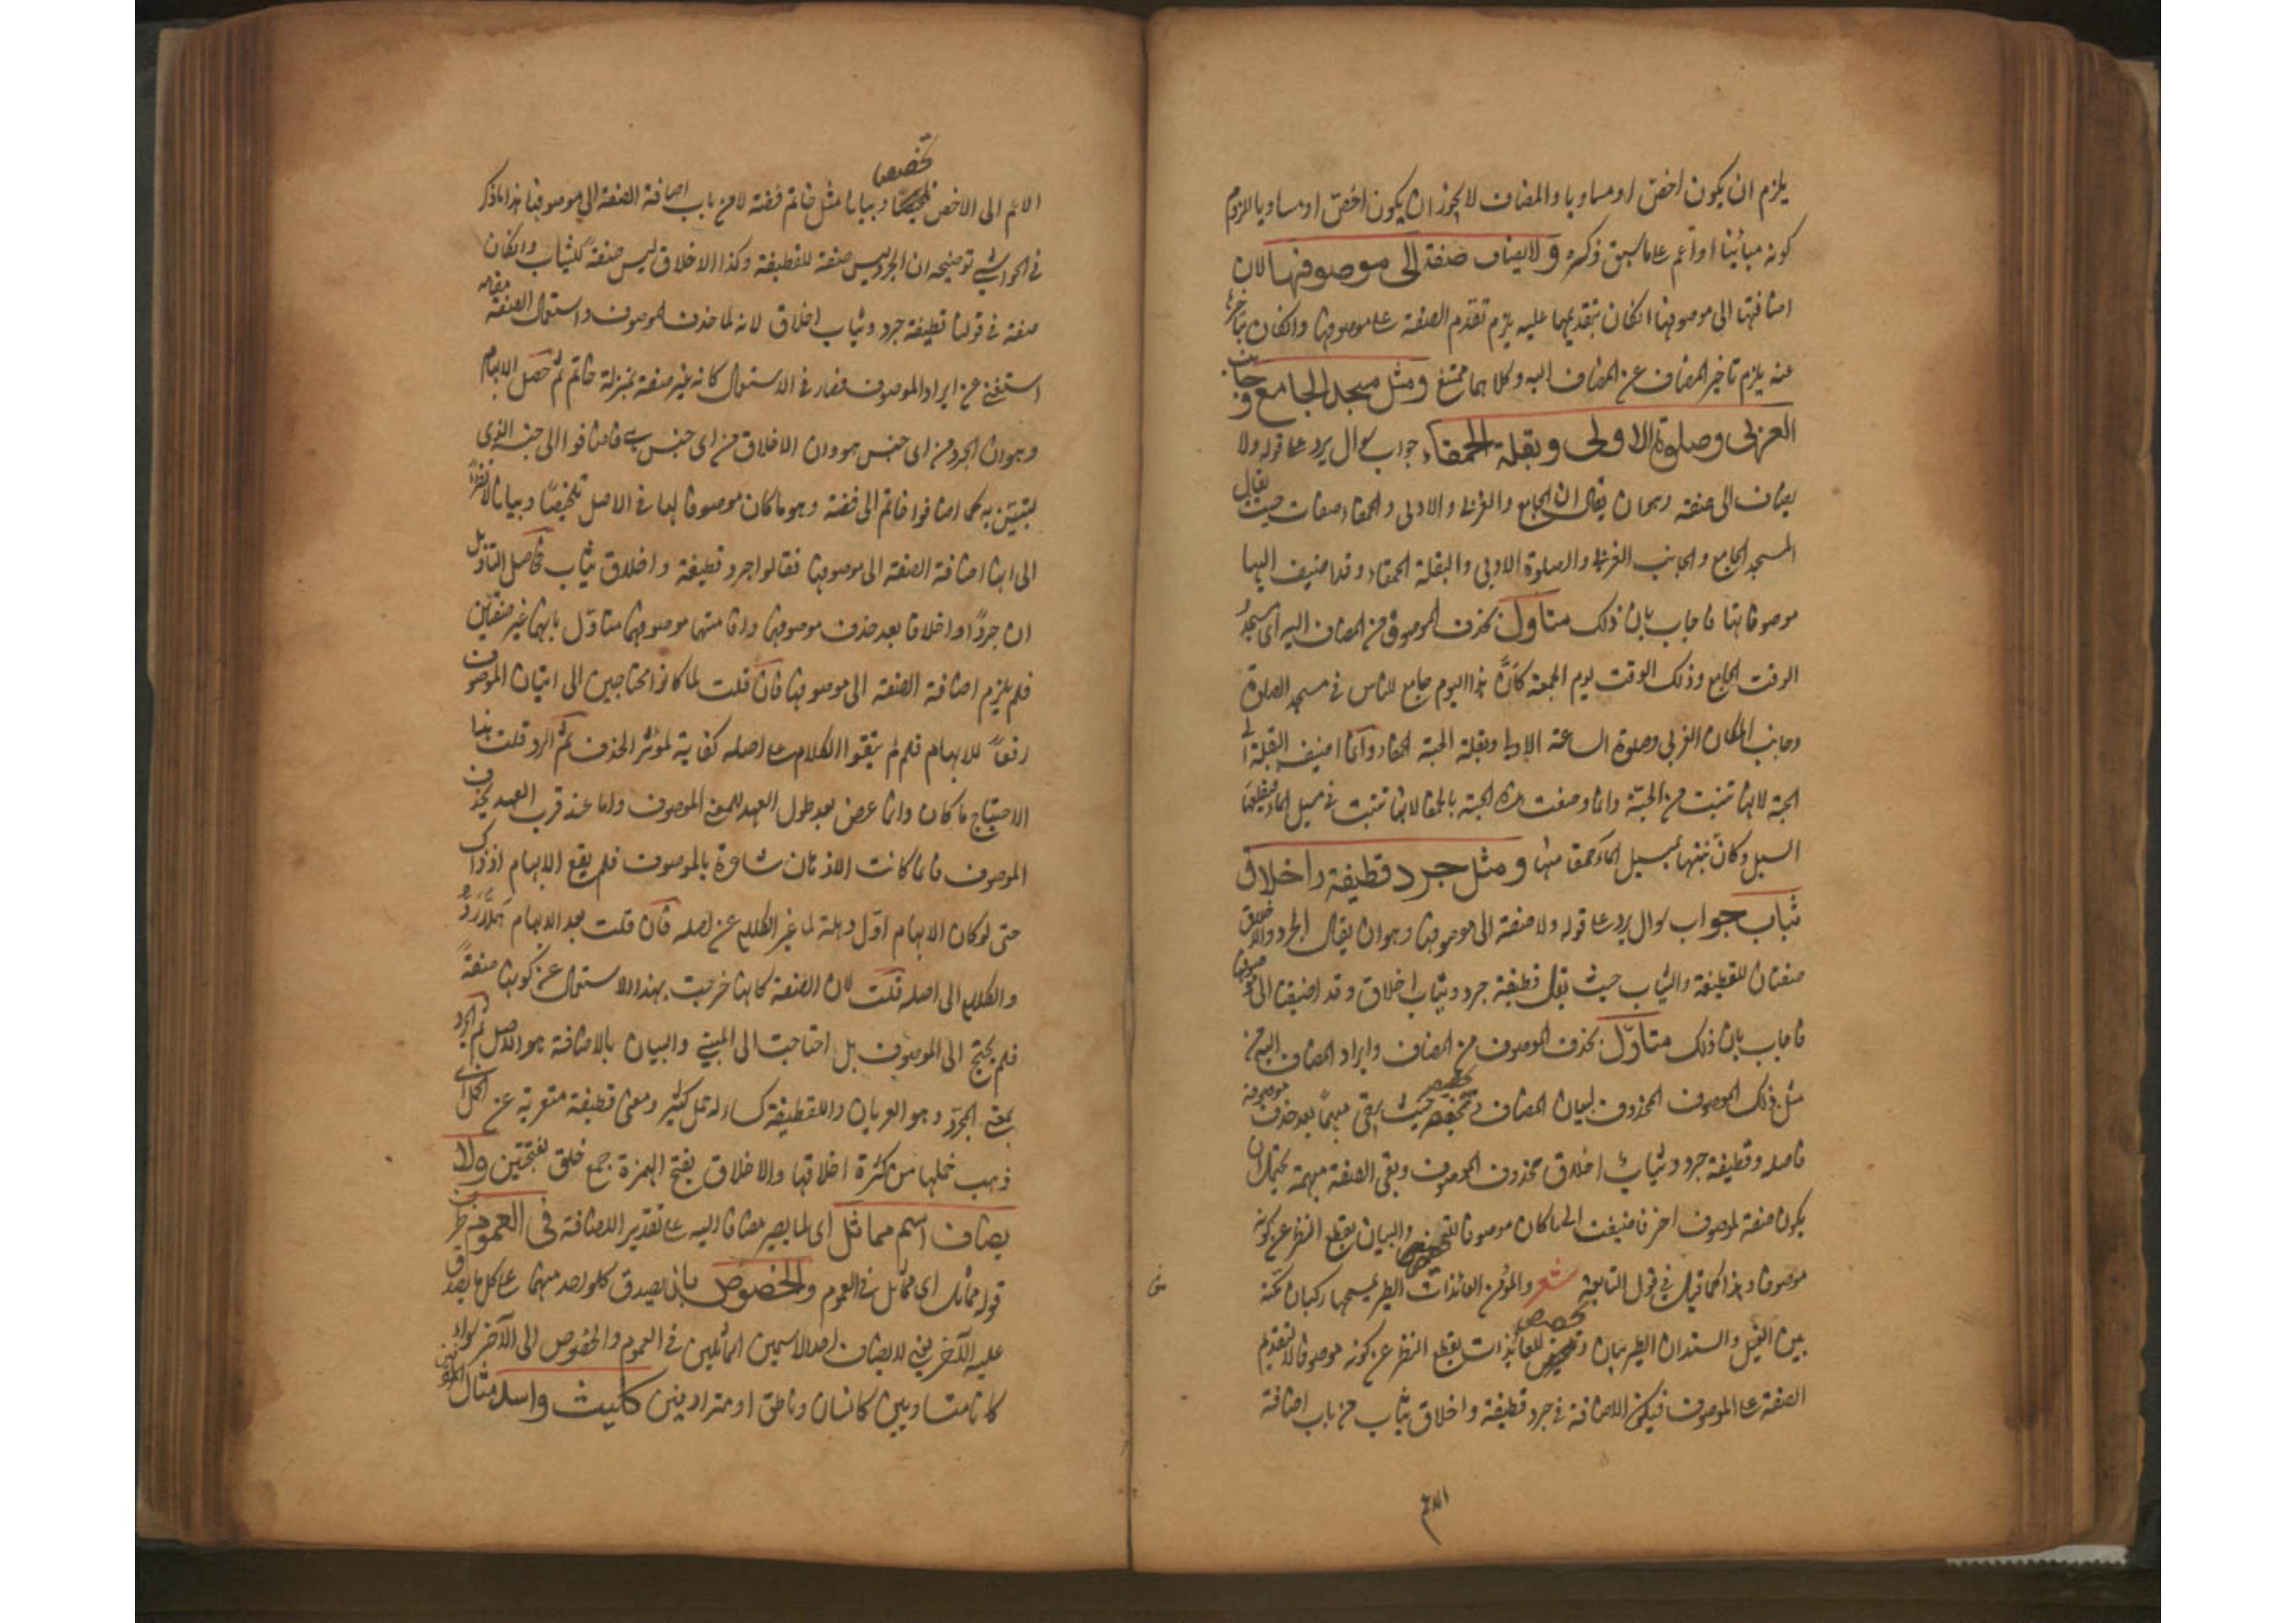 يلزم ان يكون اخص او مساويا والمضاف لا يجوز ان يكون اخص او مساويا للزوم
كونه مبائنا او اعم على ما سبق ذكره ولا يضاف صفة الى موصوفها لان
اضافتها الى موصوفها ان كان بتقديمها عليه يلزم تقدم الصفة على موصوفها وان كان بتاخرها
عنه يلزم تاخير المضاف عن المضاف اليه وكلاهما ممتنع ومثل مسجد الجامع وجانب
الغربى وصلوة الاولى وبقلة الحمقاء جواب سوال يرد على قوله ولا
يضاف الى صفته وهو ان يقال ان الجامع والغربى والاولى والحمقاء صفات حيث يقال
المسجد الجامع والجانب الغربى والصلوة الاولى والبقلة الحمقاء وقد اضيف اليها
موصوفاتها فاجاب بان ذلك متاول بحذف الموصوف من المضاف اليه اى مسجد
الوقت الجامع وذلك الوقت يوم الجمعة كان هذا اليوم جامع للناس فى مسجد الصلوة
وجانب المكان الغربى وصلوة الساعة الاولى وبقلة الحبة الحمقاء وانما اضيف البقلة الى
الحبة لانها تنبت من الحبة وانما وصفت هذه الحبة بالحمقاء لانها تنبت فى مسيل الماء فيقطعها
السيل وكان نبتها بمسيل الماء حمق منها ومثل جرد قطيفة واخلاق
ثياب جواب سوال يرد على قوله ولا صفة الى موصوفها وهو ان يقال الجرد والاخلاق
صفتان للقطيفة والثياب حيث يقال قطيفة جرد وثياب اخلاق وقد اضيفتا الى موصوفها
فاجاب بان ذلك متاول بحذف الموصوف من المضاف وايراد المضاف اليه من
مثل ذلك الموصوف المحذوف لبيان المضاف تخصيص حيث بقى مبهما بعد حذف موصوفه
فاصله قطيفة جرد وثياب اخلاق محذوف الموصوف وبقى الصفة مبهمة يحتمل ان
يكون صفة لموصوف اخر فاضيفت الى ما كان موصوفا للتخصيص والبيان بقطع النظر عن كونه
موصوفا وهذا كما قيل فى قول النابغة شعر والمؤمن العائذات الطير يمسحها ركبان مكة
بين الغيل والسند ان الطير بيان وتخصيص للعائذات بقطع النظر عن كونه موصوفا لتقديم
الصفة على الموصوف فيكون الاضافة فى جرد قطيفة واخلاق ثياب من باب اضافة
الاعم
الاعم الى الاخص تخصيصا وبيانا مثل خاتم فضة لا من باب اضافة الصفة الى موصوفها هذا ما ذكر
فى الحواشى توضيحه ان الجرد ليس صفة للقطيفة وكذا الاخلاق ليس صفة للثياب وان كان
صفة فى قولنا قطيفة جرد وثياب اخلاق لانه لما حذف الموصوف واستعمال الصفة مقامه
استغنى عن ايراد الموصوف فصار فى الاستعمال كانه غير صفة بمنزلة خاتم ثم حصل الابهام
وهو ان الجرد من اى جنس هو وان الاخلاق من اى جنس هى فاضافوا الى جنسه الذى
يتبين به كما اضافوا خاتم الى فضة وهو ما كان موصوفا لها فى الاصل تخصيصا وبيانا لا نظرا
الى انها اضافة الصفة الى موصوفها فقالوا جرد قطيفة واخلاق ثياب فحاصل التاويل
ان جردا واخلاقا بعد حذف موصوفها واقامتها موصوفها متاول بانهما غير صفتين
فلم يلزم اضافة الصفة الى موصوفها فان قلت لما كانوا محتاجين الى اتيان الموصوف
رفعا للابهام فلم لم يبقوا الكلام على اصله كفاية لمؤنة الحذف ثم الرد قلت هذا
الاحتياج ما كان وانما عرض بعد طول العهد للمعنى الموصوف واما عند قرب العهد بحذف
الموصوف فانما كانت الاذهان شاعرة بالموصوف فلم يقع الابهام اذ ذاك
حتى لو كان الابهام اول وهلة لما غير الكلام عن اصله فان قلت بعد الابهام هلا ردوا
والكلام الى اصله قلت لان الصفة كانها خرجت بهذا الاستعمال عن كونها صفة
فلم يحتج الى الموصوف بل احتاجت الى المبين والبيان بالاضافة هو الاصل ثم الجرد
بمعنى المجرد وهو العريان والقطيفة كساء له خمل كثير ومعنى قطيفة متعرية عن الخمل اى
ذهب خملها من كثرة اخلاقها والاخلاق بفتح الهمزة جمع خلق بفتحتين ولا
يضاف اسم مماثل اى لما يصير مضافا اليه على تقدير الاضافة فى العموم ظرف
قوله مماثل اى مماثل فى العموم والخصوص بان يصدق كل واحد منهما على كل ما يصدق
عليه الآخر يعنى لا يضاف احد الاسمين المماثلين فى العموم والخصوص الى الآخر سواء
كانا متساويين كانسان وناطق او مترادفين كليث واسد مثال